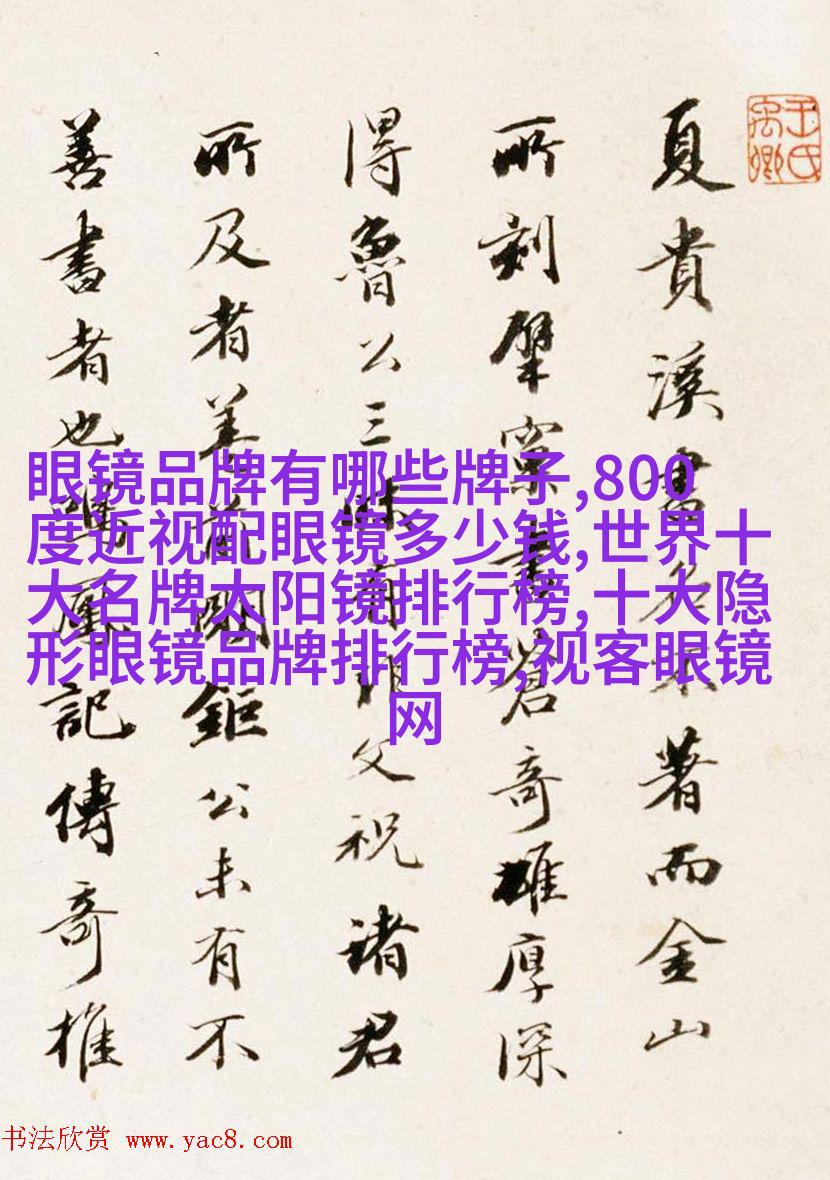 王氏
禹卿
夏貴溪書名不著而金山
所刻擘窠書蒼奇雄厚深
得魯公三昧有非文祝諸君
所及者前閣鉅公未有不
善書者也鳴鳳記傳奇推
眼镜品牌有哪些牌子,800
度近视配眼镜多少钱,世界十
大名牌太阳镜排行榜,十大隐
形眼镜品牌排行榜,视客眼镜
网
书法欣赏 www.yac8.com